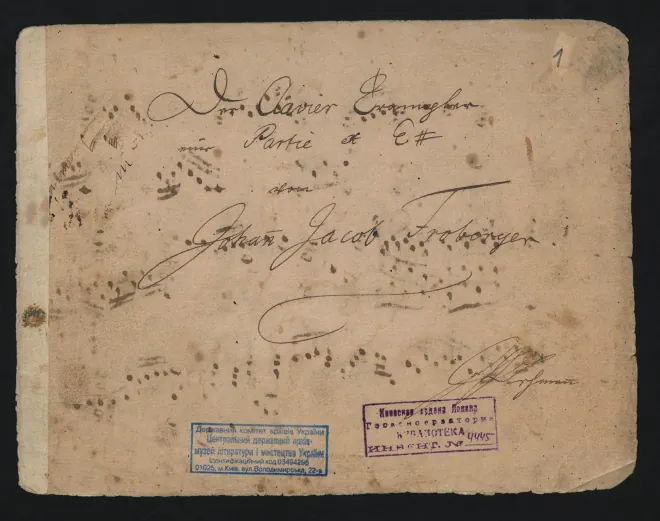 1
Der Clavier
nur Partie ex E#
vom
Johan̄ Jacob Froberger
Державний комітет архівів України
Центральний державний архів-
музей літератури і мистецтва України
Ідентифікаційний код 03494296
01025, м.Київ, вул.Володимирська, 22-а
Киевская ордена Ленина
Госконсерватория
БИБЛИОТЕКА
ИНВЕНТ. № 4445